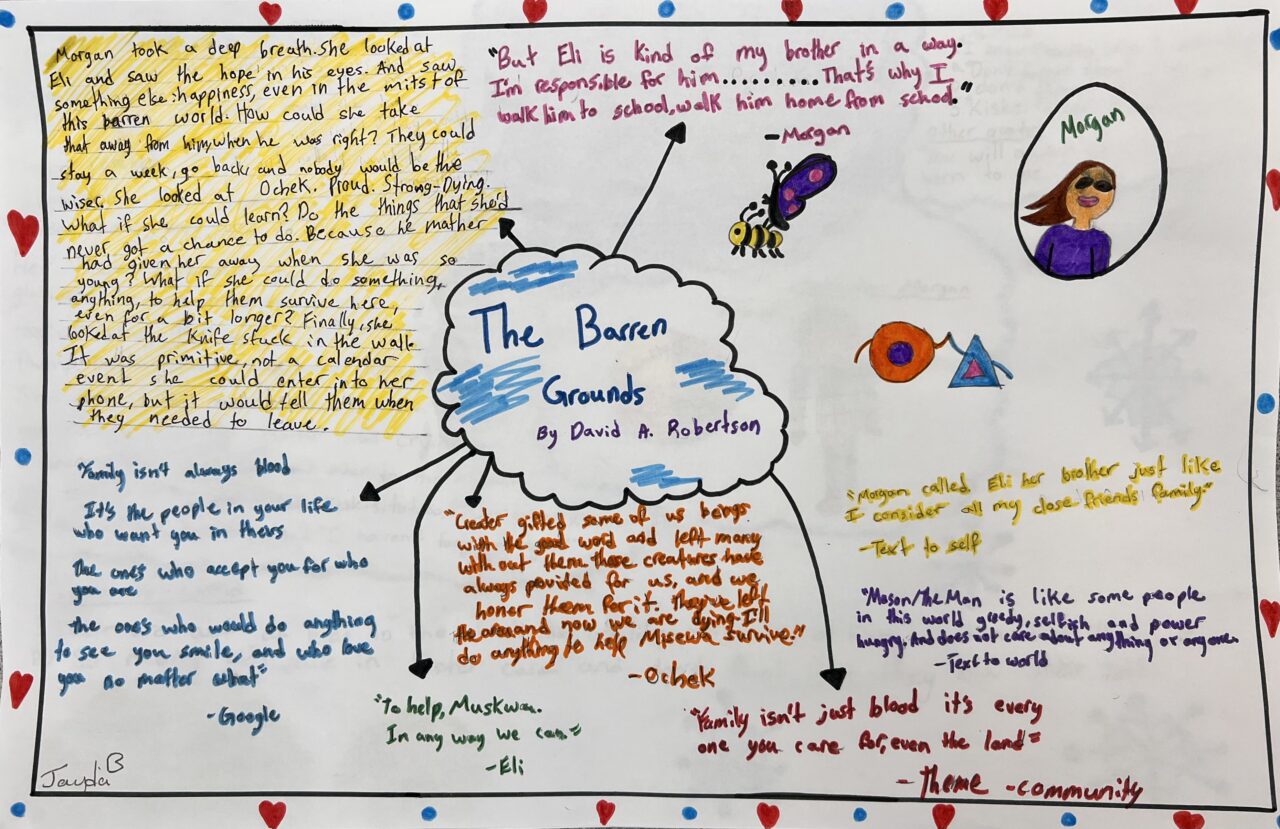 Morgan took a deep breath. She looked at
Eli and saw the hope in his eyes. And saw
something else: happiness, even in the mitst of
this barren world. How could she take
that away from him, when he was right? They could
stay a week, go back, and nobody would be the
wiser, she looked at Ochek. Proud. Strong-Dying.
What if she could learn? Do the things that she'd
never got a chance to do. Because he mather
had given her away when she was so
young? What if she could do something,
anything, to help them survive here,
even for a bit longer? Finally, she
looked at the knife stuck in the wall.
It was primitive, not a calendar
event she could enter into her
phone, but it would tell them when
they needed to leave.
"But Eli is kind of my brother in a way.
I'm responsible for him..........That's why I
walk him to school, walk him home from school."
-Morgan
Morgan
The Barren
Grounds
By David A. Robertson
"Family isn't always blood
It's the people in your life
who want you in theirs
the one's who accept you for who
you are
the one's who would do anything
to see you smile, and who love
you no matter what"
-Google
"Creater gifted some of us beings
with the good word and left many
with out them those creatures have
always povided for us, and we
honor them for it. They've left
the and now we are dying-I'll
do anything to help Misewa survive."
-Ochek
"Morgan called Eli her brother just like
I consider all my close friends family."
-Text to self
"Mason/the Man is like some people
in this world greedy, selfish and power
hungry. And does not care about anything or anyone.
-Text to world
"To help, Muskwa.
In any way we can"
-Eli
"Family isn't just blood it's every
one you care for, even the land"
-theme -community
Jayda B